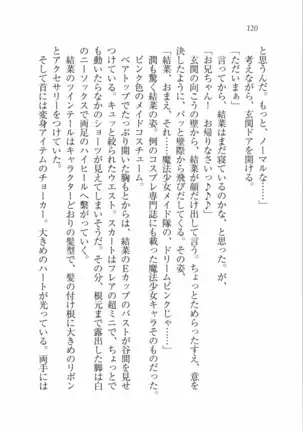 120
と思うんだ。もっと、ノーマルな……」
考えながら、玄関ドアを開ける。
「ただいまぁ」
言ってから、結菜はまだ寝ているのかな、と思った。が、
「お兄ちゃん！ お帰りなさいっ♪♪♪」
玄関の向こうの壁から、結菜が顔だけ出して言う。ちょっとためらったすえ、意を
決したように、パッと壁際から飛びだしてくる。その姿、
「結菜、おまえ、それ……魔法少女メイド隊の、ドリームピンクじゃ……」
潤も驚く結菜の姿。例のコスプレ専門誌にも載った魔法少女キャラそのものだった。
ピンク色のメイドコスチューム。
ベアトップでたっぷり開いた胸もとからは、結菜のEカップのバストが谷間を見せ
つけている。キュッと絞られたウエスト。スカートはフレアの超ミニで、ちょっとで
も動いたらなかのショーツが見えてしまいそうだ。その分、根元まで露出した脚は白
のニーソックスで両足のハイヒールへ繋がっていた。
結菜のツインテールはキャラクターどおりの髪型で、髪の付け根に大きめのリボン
とアクセサリーをつけていた。
そして首には変身アイテムのチョーカー。大きめのハートが光っている。両手には